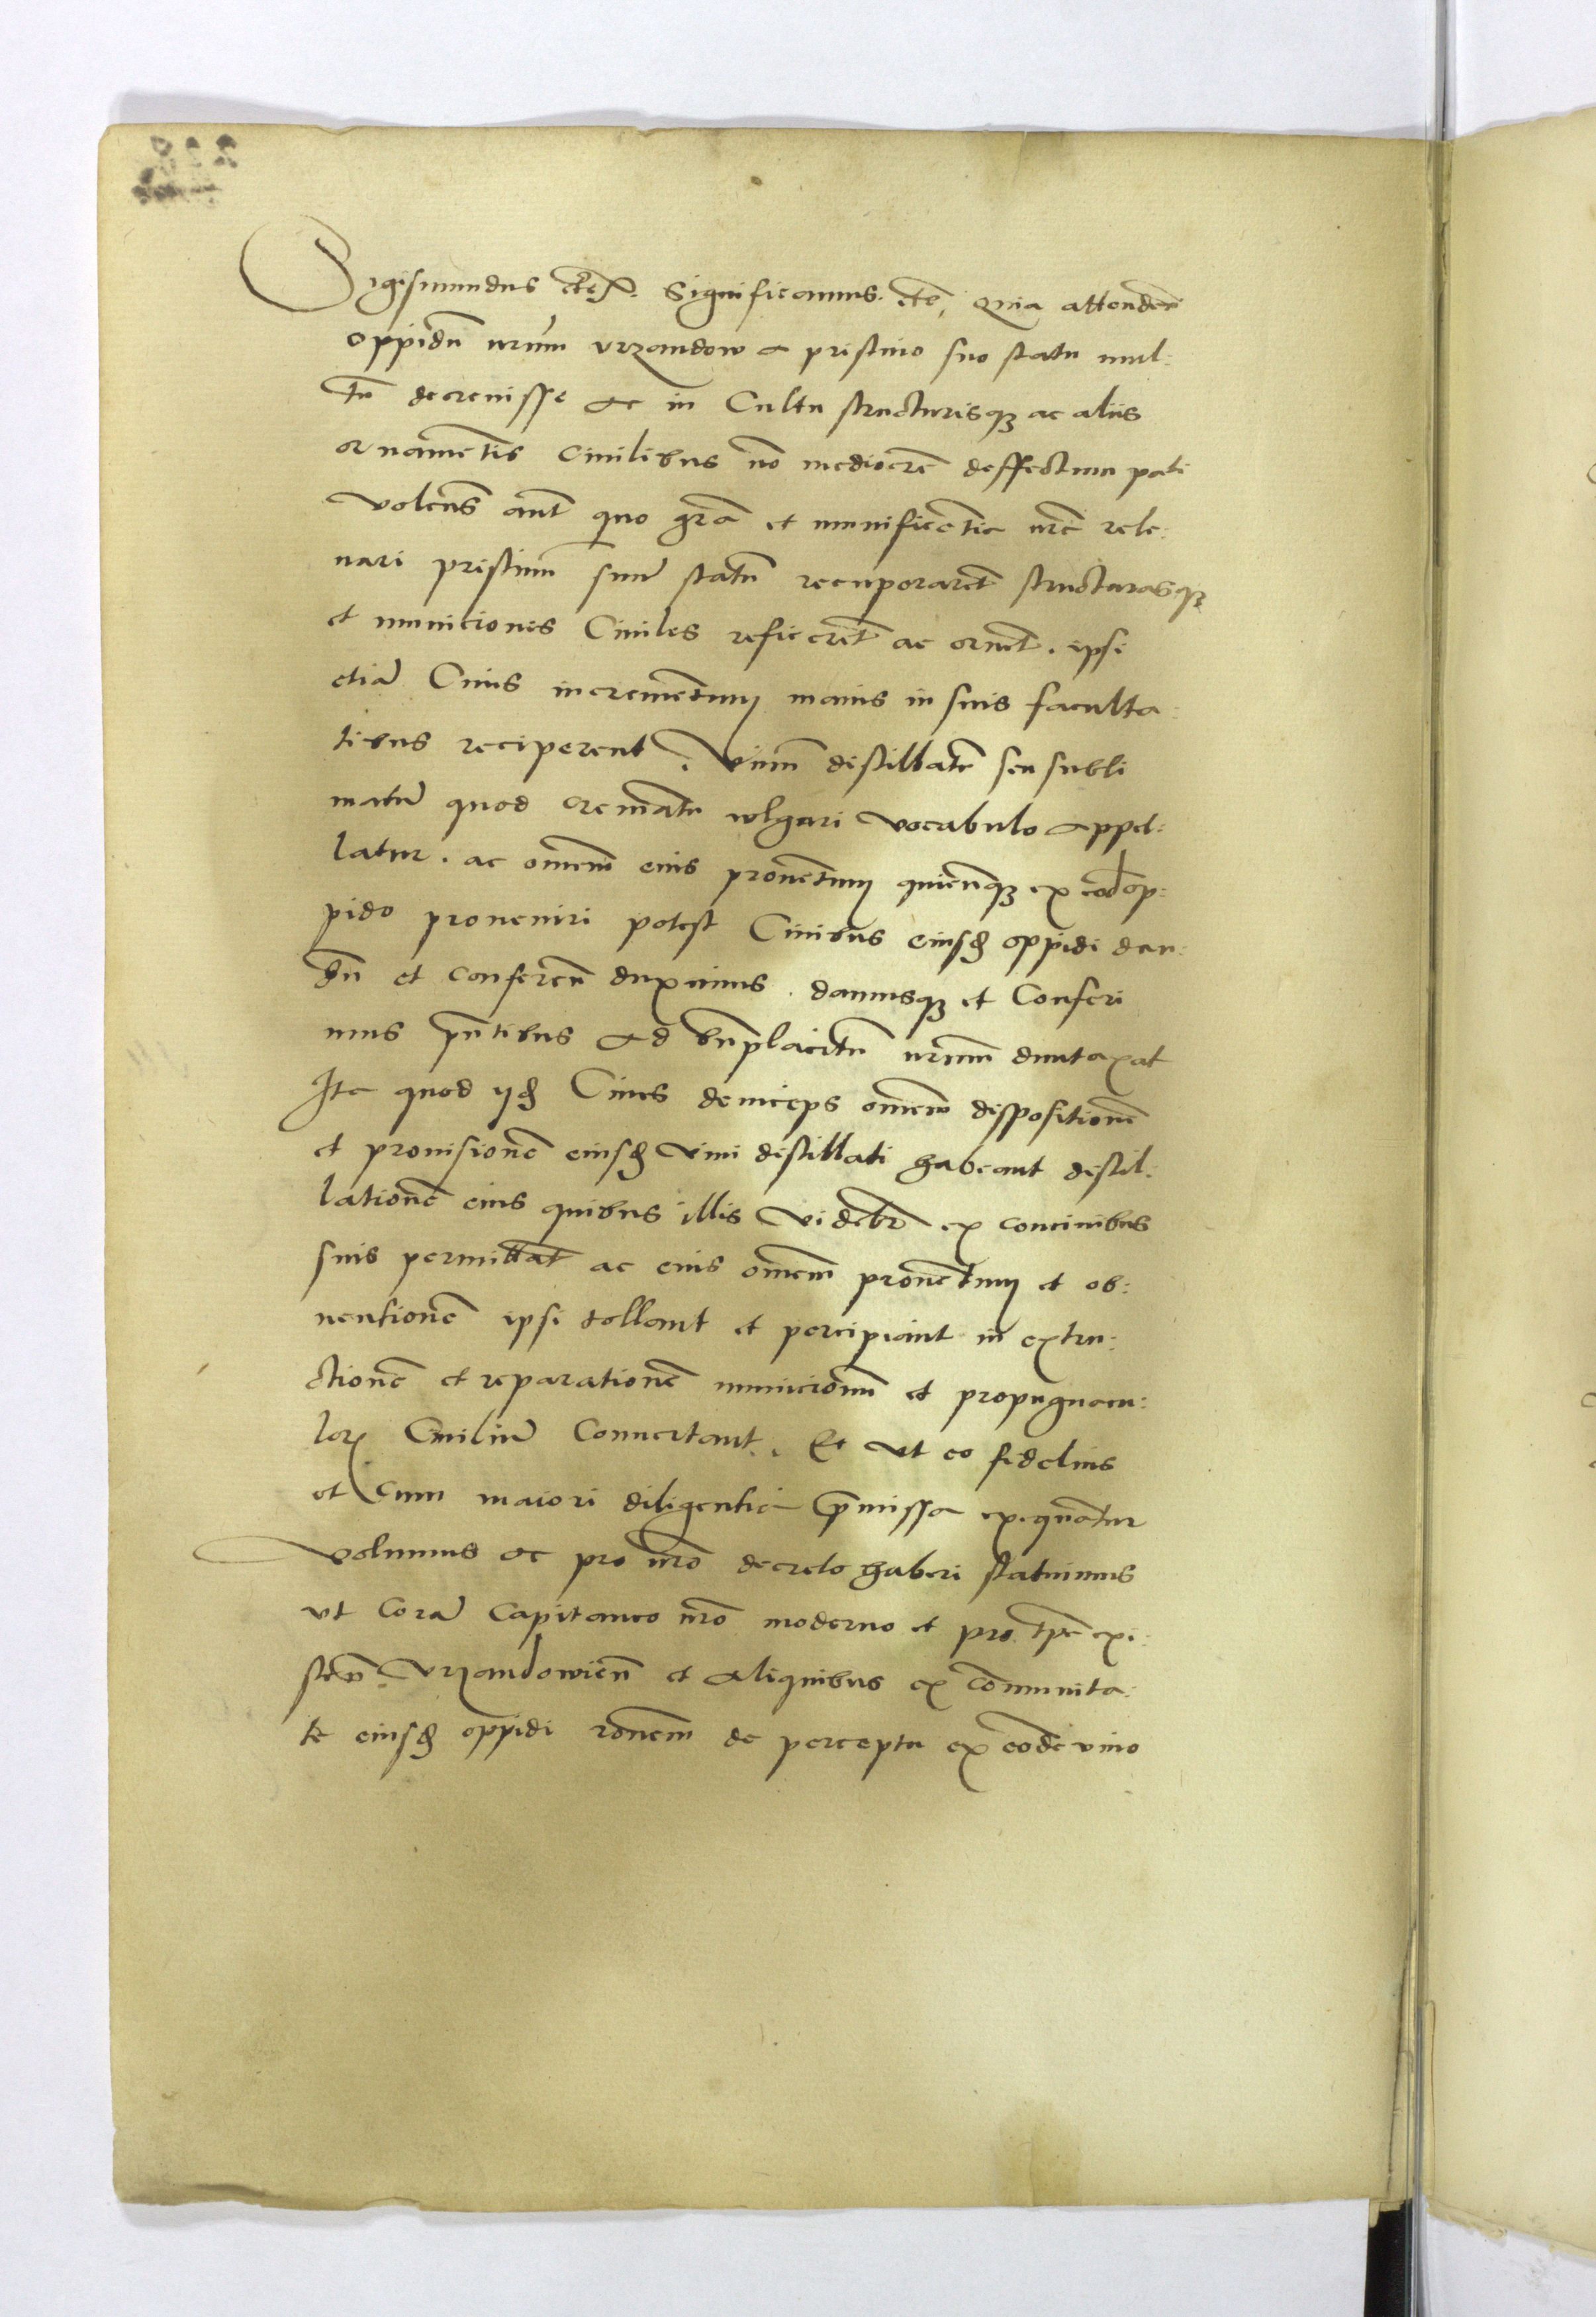 Sigismundus etc. Significamus. etc, Quia attenden̄
oppidū nrūm vrzandow a pristino suo statu mul:
tū decrevisse ac in Cultu structurisqȝ ac aliis
ornamētis Civilibus nō mediocrē deffectum pati
volentes aūt quo grā et munificētia nrā rele:
vari pristinū suū statū recuperaret structurasqȝ
et municiones Civiles reficeret ac ornet. ipsi
etiā Cives incrementum maius in suis faculta:
tibus reciperent. Vinū destillatū seu subli
matū quod crematū vulgari vocabulo appel:
latur. ac omnem eius proventum quicunqȝ ex eod op:
pido proveniri potest Civibus eiusd oppidi dan:
dū et conferen̄ duximus. damusqȝ et Conferi
mus pn̄tibus ad bn̄placitū nrūm duntaxat
Ita quod iid Cives deinceps omnem dispositionē
et provisionē eiusd vini destillati habeant destil:
lationē eius quibus illis videbr̄ ex concivibus
suis permittāt ac eius omnem proventum et ob:
ventionē ipsi tollant et percipiant in extru:
ctionē et reparationē municionū et propugnacu:
lorꝝ Civiliū Convertant. Et ut eo fidelius
et cum maiori diligentia p̄missa exequātur
volumus ac pro nrō decreto haberi statuimus
ut Corā Capitaneo nrō moderno et pro tp̄e exi:
sten̄ Vrzandowien̄ et aliquibus ex cōmunita:
te eiusd oppidi rōnem de perceptu ex eodē vino